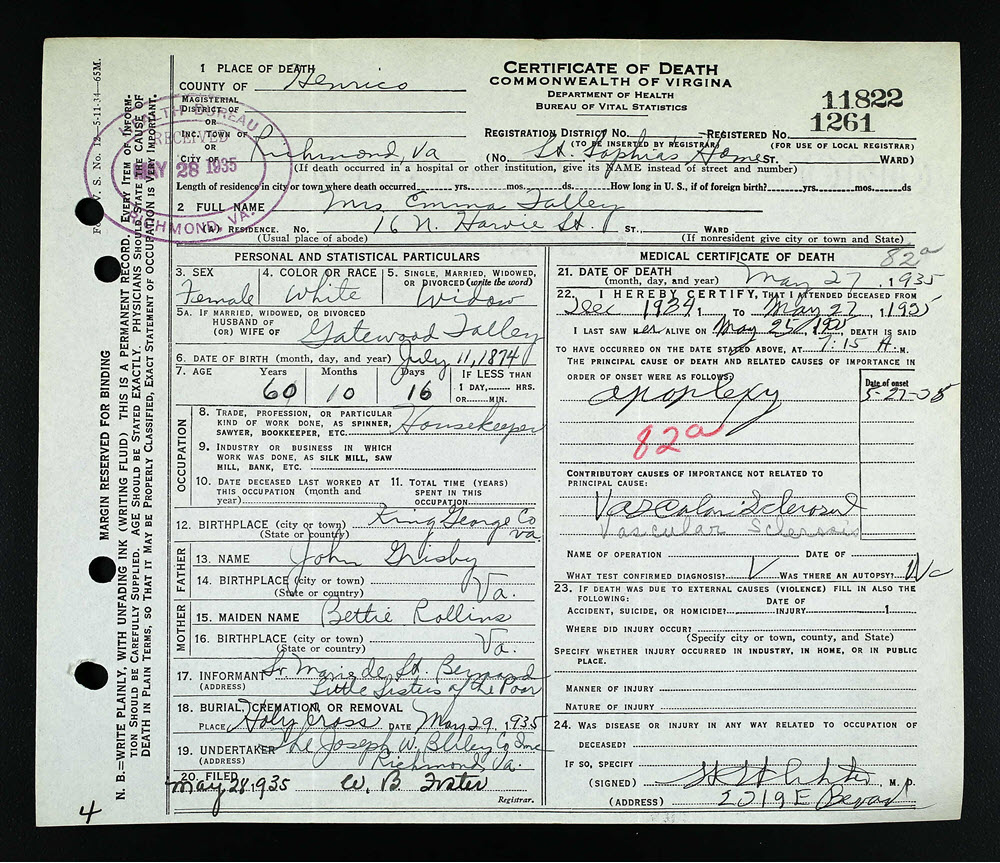 CERTIFICATE OF DEATH
COMMONWEALTH OF VIRGINA
DEPARTMENT OF HEALTH
BUREAU OF VITAL STATISTICS
11822
1261
1 PLACE OF DEATH
COUNTY OF Henrico
MAGISTERIAL
DISTRICT OF
OR
INC. TOWN OF
OR
CITY OF Richmond, Va
REGISTRATION DISTRICT No. REGISTERED No.
(TO BE INSERTED BY REGISTRAR) (FOR USE OF LOCAL REGISTRAR)
(No. St. Sophia's Home ST. WARD)
(If death occurred in a hospital or other institution, give its NAME instead of street and number)
Length of residence in city or town where death occurred yrs. mos. ds. How long in U. S., if of foreign birth? yrs. mos. ds
2 FULL NAME Mrs. Emma Talley
(A) RESIDENCE. No. 16 N. Harvie St. ST., WARD
(Usual place of abode) (If nonresident give city or town and State)
RECEIVED
MAY 28 1935
RICHMOND, VA.
PERSONAL AND STATISTICAL PARTICULARS
3. SEX 4. COLOR OR RACE 5. SINGLE, MARRIED, WIDOWED, OR DIVORCED (write the word)
Female White Widow
5A. IF MARRIED, WIDOWED, OR DIVORCED
HUSBAND OF
(OR) WIFE OF Gatewood Talley
6. DATE OF BIRTH (month, day, and year) July 11, 1874
7. AGE Years Months Days IF LESS THAN
60 10 16 1 DAY, HRS.
OR MIN.
OCCUPATION
8. TRADE, PROFESSION, OR PARTICULAR
KIND OF WORK DONE, AS SPINNER,
SAWYER, BOOKKEEPER, ETC. Housekeeper
9. INDUSTRY OR BUSINESS IN WHICH
WORK WAS DONE, AS SILK MILL, SAW
MILL, BANK, ETC.
10. DATE DECEASED LAST WORKED AT THIS OCCUPATION (month and year)
11. TOTAL TIME (YEARS) SPENT IN THIS OCCUPATION
12. BIRTHPLACE (city or town) King George Co
(State or country) Va.
FATHER
13. NAME John Grisby
14. BIRTHPLACE (city or town)
(State or country) Va.
MOTHER
15. MAIDEN NAME Bettie Rollins
16. BIRTHPLACE (city or town)
(State or country) Va.
17. INFORMANT Sr Marie de St. Bernard
(ADDRESS) Little Sisters of the Poor
18. BURIAL, CREMATION, OR REMOVAL
PLACE Holy Cross DATE May 29, 1935
19. UNDERTAKER The Joseph W. Bliley Co Inc
(ADDRESS) Richmond Va.
20. FILED
May 28, 1935 W. B. Foster
Registrar.
MEDICAL CERTIFICATE OF DEATH
82a
21. DATE OF DEATH
(month, day, and year) May 27, 1935
22. I HEREBY CERTIFY, THAT I ATTENDED DECEASED FROM
Dec 1934, TO May 27, 1935
I LAST SAW her ALIVE ON May 25, 1935, DEATH IS SAID
TO HAVE OCCURRED ON THE DATE STATED ABOVE, AT 7:15 A. M.
THE PRINCIPAL CAUSE OF DEATH AND RELATED CAUSES OF IMPORTANCE IN
ORDER OF ONSET WERE AS FOLLOWS:
Date of onset
apoplexy 5-27-35
82a
CONTRIBUTORY CAUSES OF IMPORTANCE NOT RELATED TO
PRINCIPAL CAUSE:
Vascular Sclerosis
Vascular Sclerosis
NAME OF OPERATION DATE OF
WHAT TEST CONFIRMED DIAGNOSIS? WAS THERE AN AUTOPSY? No
23. IF DEATH WAS DUE TO EXTERNAL CAUSES (VIOLENCE) FILL IN ALSO THE
FOLLOWING:
ACCIDENT, SUICIDE, OR HOMICIDE? DATE OF INJURY 1
WHERE DID INJURY OCCUR?
(Specify city or town, county, and State)
SPECIFY WHETHER INJURY OCCURRED IN INDUSTRY, IN HOME, OR IN PUBLIC
PLACE.
MANNER OF INJURY
NATURE OF INJURY
24. WAS DISEASE OR INJURY IN ANY WAY RELATED TO OCCUPATION OF
DECEASED?
IF SO, SPECIFY
(SIGNED) M. D.
(ADDRESS) 2019 E
V. S. No. 12—5-11-34—65M.
MARGIN RESERVED FOR BINDING
N. B.—WRITE PLAINLY, WITH UNFADING INK (WRITING FLUID) THIS IS A PERMANENT RECORD. EVERY ITEM OF INFORM-
TION SHOULD BE CAREFULLY SUPPLIED. AGE SHOULD BE STATED EXACTLY. PHYSICIANS SHOULD STATE THE CAUSE OF
DEATH IN PLAIN TERMS, SO THAT IT MAY BE PROPERLY CLASSIFIED. EXACT STATEMENT OF OCCUPATION IS VERY IMPORTANT.
4